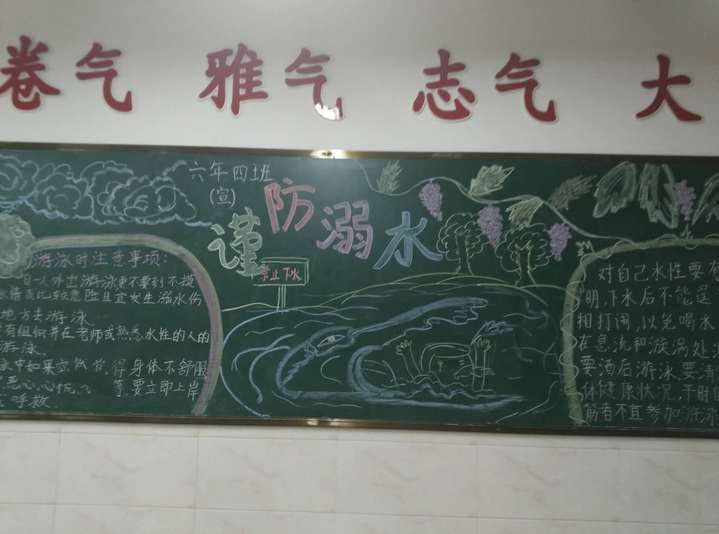 卷气 雅气 志气 大
六年四班
(宣)
谨防溺水
禁止下水
游泳时注意事项:
人外出游泳更不要到不摸
险且宜发生溺水伤
地方去游泳.
有组织并在老师或熟悉水性的人的
游泳.
得身体不舒服
等,要立即上岸
呼救
对自己水性要有
明,下水后不能逞
相打闹,以免喝水
在急流和漩涡处
要酒后游泳要清
体健康状况,平时
者不宜参加游泳